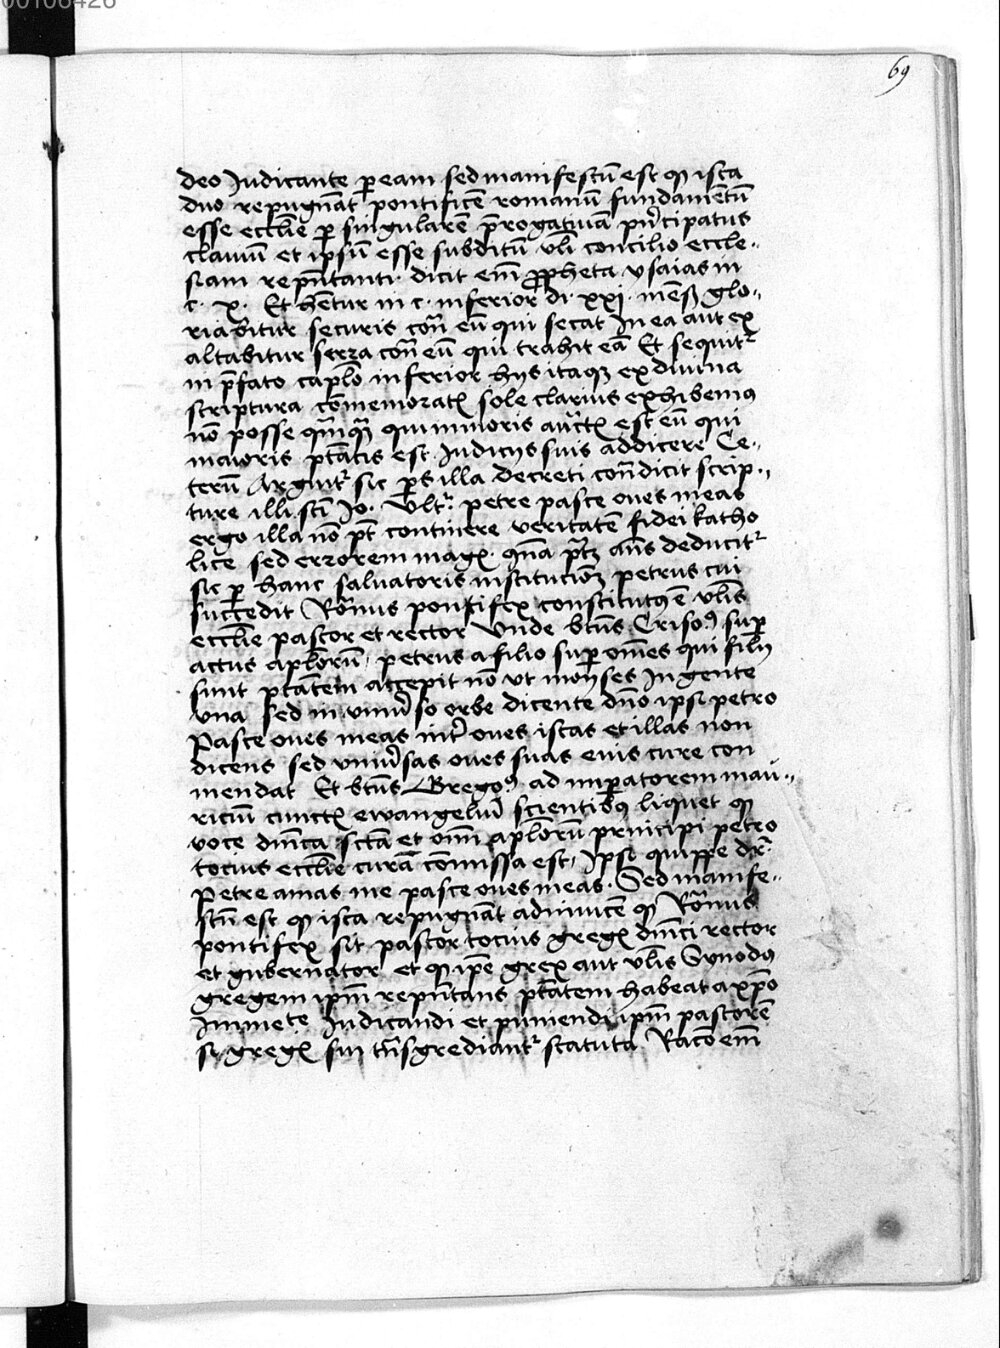 00106426
69
deo Judicante p eam sed manifestū est qƺ ista
duo repugnāt pontificē romanū fundamētū
esse ecclīe p singularē p̄rogatiuā pn̄cipatus
clauiū et ipsū esse subditū vl̄i concilio eccle‑
siam rep̄ntanti dicit em̄ ꝓpheta ysaias in
c. x. Et hētur in c. inferior di. xxi. nēqƺ glo‑
riabitur securis cōtͣ eū qui secat in ea aut ex
altabitur serra cōtͣ eū qui trahit eā Et sequitͬ
in p̄fato capl̄o inferior hijs itaqƺ ex diuina
scriptura cōmemoratꝭ sole clarius exhibemꝰ
nō posse qͫqͣ qui minoris auctꝭ est eū qui
maioris ptātis est Judicijs suis addicere Ce‑
terū Arguitͬ sic ps illa decreti cōdicit scrip‑
ture illi scī Jo. vltͦ. petre pasce oues meas
ergo illa nō pt continere veritatē fidei katho
lice sed errorem magꝭ qn̄a ptƺ an̄s deducitͬ
sic p hanc saluatoris institucionƺ petrus cui
succedit Ro̅nus pontifex constitutꝰ ē vl̄is
ecclīe pastor et rector Vnde bt̄us Crisoꝰ sup
actus apl̄orū petrus a filio sup om̄es qui filij
sunt ptātem accepit nō vt moyses in gente
vna sed in vniu̾so orbe dicente dn̄o ipsi petro
Pasce oues meas int̾ oues istas et illas non
dicens sed vniu̾sas oues suas eius cure con
mendat Et bt̄us Gregoꝰ ad imperatorem mau‑
riciū cunctꝭ ewangeliū scientibꝰ liquet qƺ
voce dn̄ica sctā et om̄ī apl̄orū principi petro
tocius ecclīe curā cōmissa est, Ipsi quippe dr̄
Petre amas me pasce oues meas. Sed manife‑
stū est qƺ ista repugnāt adinuicē qƺ Ro̅nus
pontifex sit pastor tocius gregꝭ dn̄ici rector
et gubernator et qƺ ip̄e grex aut vl̄is Synodꝰ
gregem ipm̄ rep̄ntans ptātem habeat a xpō
Jnmete Judicandi et puniendi ipm̄ pastorē
si gregꝭ sui tn̄sgrediantͬ statuta Racō em̄